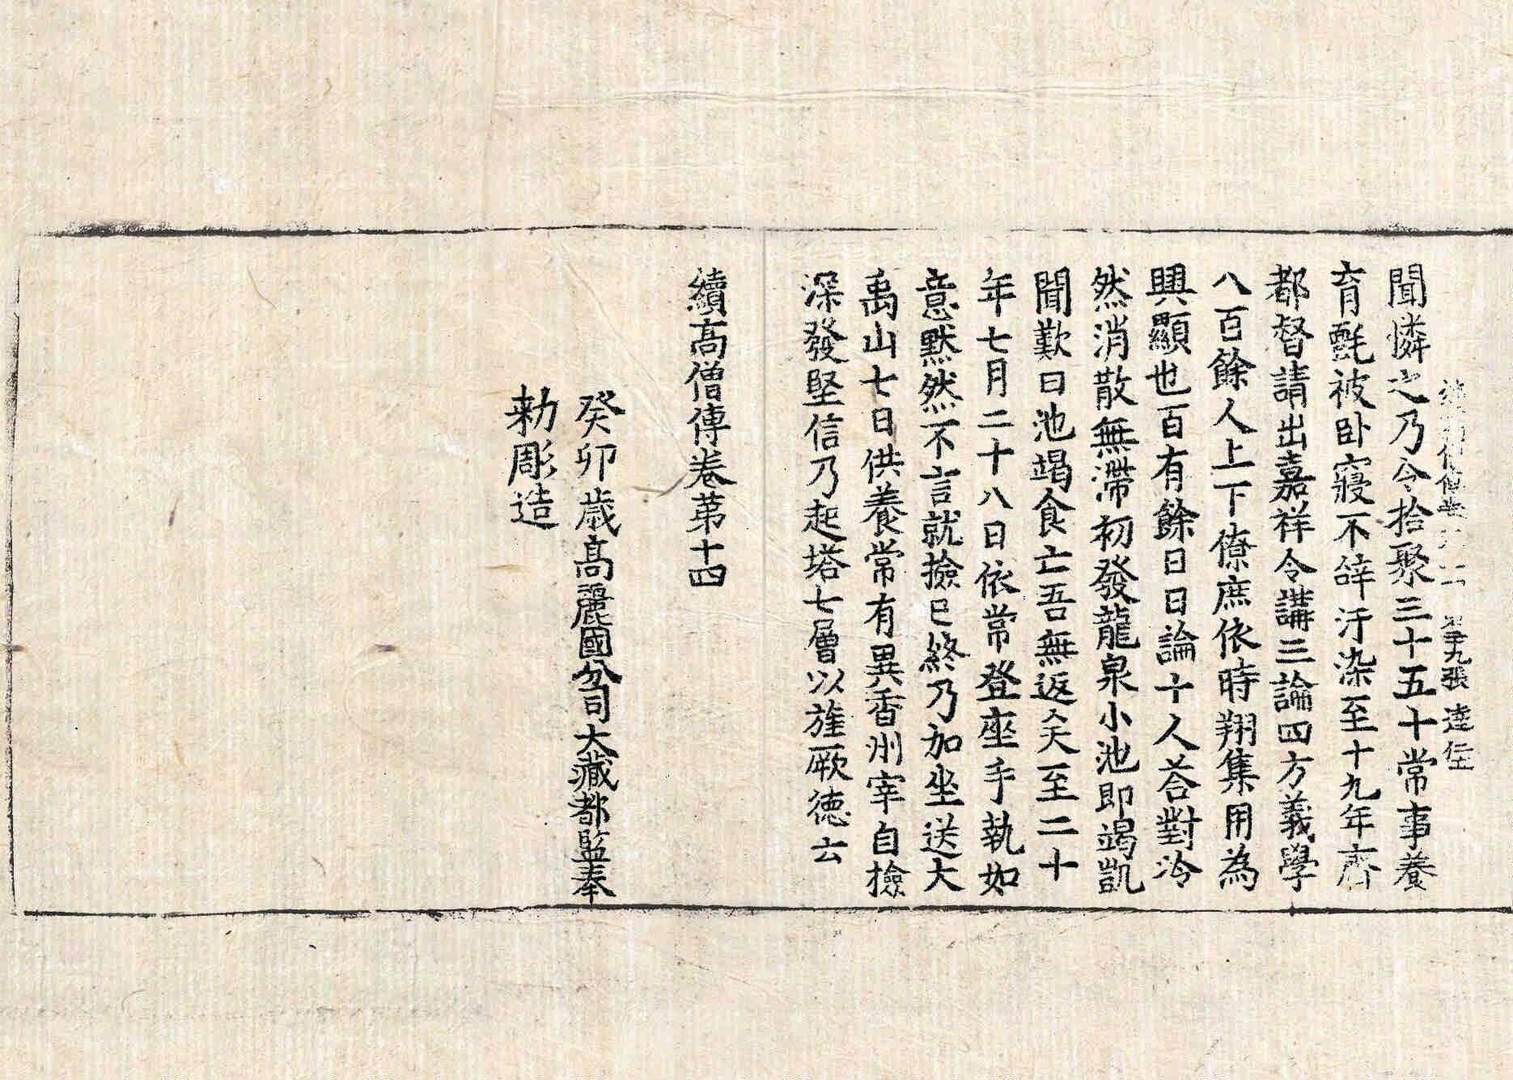 第二九張 達仁
聞憐之乃令拾聚三十五十常事養
育氈被卧寢不辝汙染至十九年齊
都督請出嘉祥令講三論四方義學
八百餘人上下僚庶依時翔集用為
興顯也百有餘日日論十人荅對泠
然消散無滯初發龍泉小池即竭凱
聞歎曰池竭食亡吾無返矣至二十
年七月二十八日依常登座手執如
意默然不言就撿已終乃加坐送大
禹山七日供養常有異香州宰自撿
深發堅信乃起塔七層以旌厥德云
續高僧傳卷第十四
癸卯歲高麗國分司大藏都監奉
勅彫造